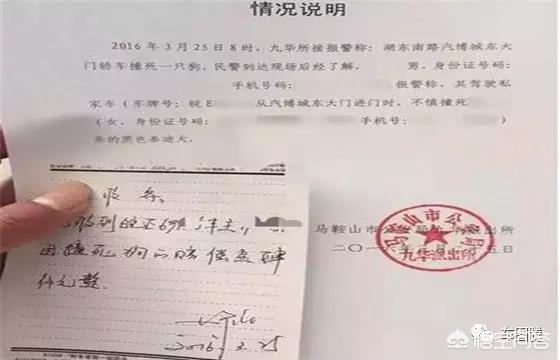 情况说明
2016年3月25日8时，九华所接报警称：湖东南路汽博城东大
门轿车撞死一只狗，民警到达现场后经了解， 男，身份证号码：
手机号码： 报警称，其驾驶私
家车（车牌号：皖E 从汽博城东大门进门时，不慎撞死
（女，身份证号码： 手机号
养的黑色泰迪犬。
收条
收到皖
因撞死狗的赔偿金肆
仟元整
2016.3.25
马鞍山市 派出所
二〇一 五日
马鞍山市公 局
九华派出所
车图腾
悟空问答